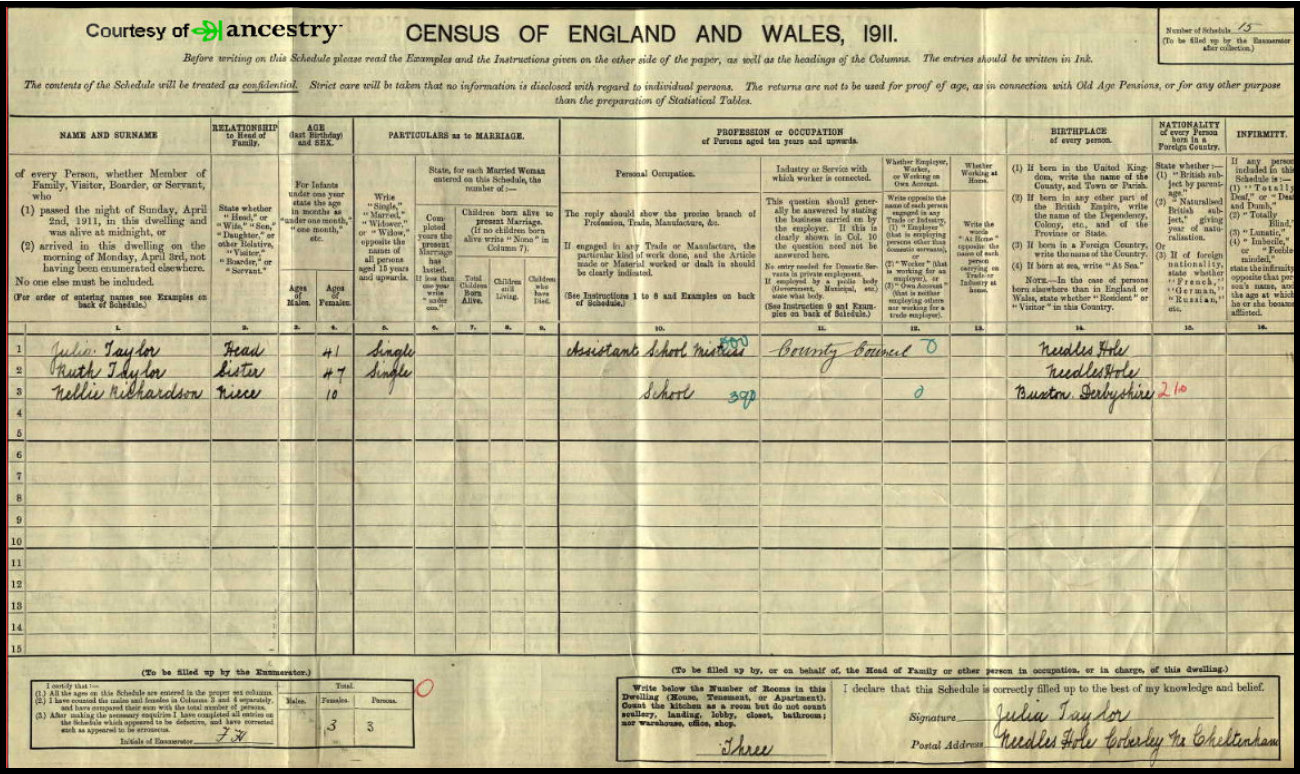 Courtesy of ancestry
CENSUS OF ENGLAND AND WALES, 1911.
Number of Schedule 15
(To be filled up by the Enumerator
after collection.)
Before writing on this Schedule please read the Examples and the Instructions given on the other side of the paper, as well as the headings of the Columns. The entries should be written in Ink.
The contents of the Schedule will be treated as confidential. Strict care will be taken that no information is disclosed with regard to individual persons. The returns are not to be used for proof of age, as in connection with Old Age Pensions, or for any other purpose
than the preparation of Statistical Tables.
NAME AND SURNAME
of every Person, whether Member of
Family, Visitor, Boarder, or Servant,
who
(1) passed the night of Sunday, April
2nd, 1911, in this dwelling and
was alive at midnight, or
(2) arrived in this dwelling on the
morning of Monday, April 3rd, not
having been enumerated elsewhere.
No one else must be included.
(For order of entering names see Examples on
back of Schedule.)
RELATIONSHIP
to Head of
Family.
State whether
"Head," or
"Wife," "Son,"
"Daughter," or
other Relative,
"Visitor,"
"Boarder," or
"Servant."
AGE
(last Birthday)
and SEX.
For Infants
under one year
state the age
in months as
"under one month,"
"one month,"
etc.
Ages
of
Males.
Ages
of
Females.
PARTICULARS as to MARRIAGE.
Write
"Single,"
"Married,"
"Widower,"
or "Widow,"
opposite the
names of
all persons
aged 15 years
and upwards.
State, for each Married Woman
entered on this Schedule, the
number of:—
Com-
pleted
years the
present
Marriage
has
lasted.
If less than
one year
write
"under
one."
Children born alive to
present Marriage.
(If no children born
alive write "None" in
Column 7).
Total
Children
Born
Alive.
Children
still
Living.
Children
who
have
Died.
PROFESSION or OCCUPATION
of Persons aged ten years and upwards.
Personal Occupation.
The reply should show the precise branch of
Profession, Trade, Manufacture, &c.
If engaged in any Trade or Manufacture, the
particular kind of work done, and the Article
made or Material worked or dealt in should
be clearly indicated.
(See Instructions 1 to 8 and Examples on back
of Schedule.)
Industry or Service with
which worker is connected.
This question should gener-
ally be answered by stating
the business carried on by
the employer. If this is
clearly shown in Col. 10
the question need not be
answered here.
No entry needed for Domestic Ser-
vants in private employment.
If employed by a public body
(Government, Municipal, etc.)
state what body.
(See Instruction 9 and Exam-
ples on back of Schedule.)
Whether Employer,
Worker,
or Working on
Own Account.
Write opposite the
name of each person
engaged in any
Trade or Industry,
(1) "Employer"
(that is employing
persons other than
domestic servants),
or
(2) "Worker" (that
is working for an
employer), or
(3) "Own Account"
(that is neither
employing others
nor working for a
trade employer).
Whether
Working at
Home.
Write the
words
"At Home"
opposite the
name of each
person
carrying on
Trade or
Industry at
home.
BIRTHPLACE
of every person.
(1) If born in the United King-
dom, write the name of the
County, and Town or Parish.
(2) If born in any other part of
the British Empire, write
the name of the Dependency,
Colony, etc., and of the
Province or State.
(3) If born in a Foreign Country,
write the name of the Country.
(4) If born at sea, write "At Sea."
NOTE.—In the case of persons
born elsewhere than in England or
Wales, state whether "Resident" or
"Visitor" in this Country.
NATIONALITY
of every Person
born in a
Foreign Country.
State whether:—
(1) "British sub-
ject by parent-
age."
(2) "Naturalised
British sub-
ject," giving
year of natu-
ralisation.
Or
(3) If of foreign
nationality,
state whether
"French,"
"German,"
"Russian,"
etc.
INFIRMITY.
If any person
included in this
Schedule is:—
(1) "Totally
Deaf," or "Deaf
and Dumb,"
(2) "Totally
Blind,"
(3) "Lunatic,"
(4) "Imbecile,"
or "Feeble-
minded,"
state the infirmity
opposite that per-
son's name, and
the age at which
he or she became
afflicted.
1. 2. 3. 4. 5. 6. 7. 8. 9. 10. 11. 12. 13. 14. 15. 16.
1 Julia Taylor Head 41 Single Assistant School Mistress 800 County Council 0 Needles Hole
2 Ruth Taylor Sister 47 Single Needles Hole
3 Nellie Richardson Niece 10 School 390 0 Buxton. Derbyshire 210
4
5
6
7
8
9
10
11
12
13
14
15
(To be filled up by the Enumerator.)
I certify that:—
(1.) All the ages on this Schedule are entered in the proper sex columns.
(2.) I have counted the males and females in Columns 3 and 4 separately,
and have compared their sum with the total number of persons.
(3.) After making the necessary enquiries I have completed all entries on
the Schedule which appeared to be defective, and have corrected
such as appeared to be erroneous.
Initials of Enumerator
Total.
Males. Females. Persons.
3 3
0
(To be filled up by, or on behalf of, the Head of Family or other person in occupation, or in charge, of this dwelling.)
Write below the Number of Rooms in this
Dwelling (House, Tenement, or Apartment).
Count the kitchen as a room but do not count
scullery, landing, lobby, closet, bathroom;
nor warehouse, office, shop.
Three
I declare that this Schedule is correctly filled up to the best of my knowledge and belief.
Signature Julia Taylor
Postal Address Needles Hole Coberley Nr Cheltenham